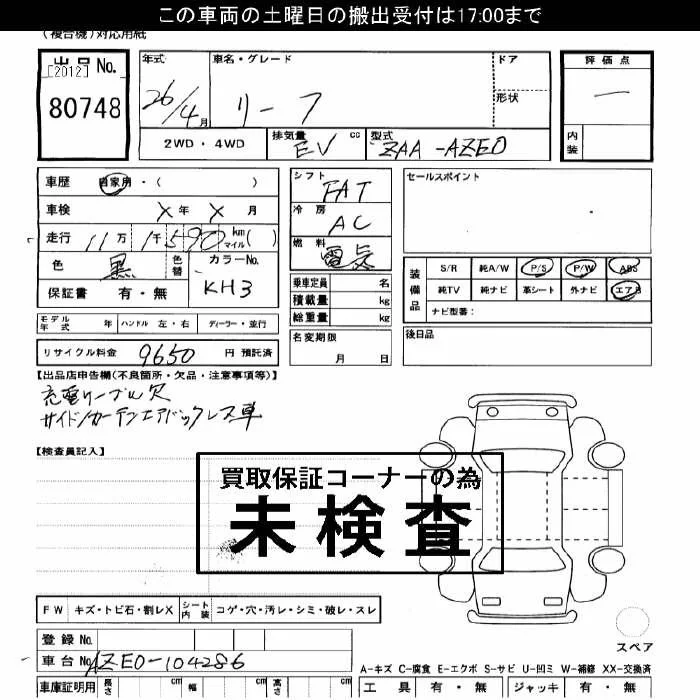 この車両の土曜日の搬出受付は17:00まで
(複合機)対応用紙
出品 No.
[2012]
80748
年式
26/4月
車名・グレード
リーフ
ドア
形状
2WD・4WD
排気量 cc
EV
型式
ZAA-AZE0
評価点
一
内装
車歴 自家用・( )
車検 X年 X月
走行 11万 1千590 km マイル( )
色 黒 色替
カラーNo.
KH3
保証書 有・無
シフト
FAT
冷房
AC
燃料
電気
乗車定員 名
積載量 kg
総重量 kg
セールスポイント
装備品
S/R 純A/W P/S P/W ABS
純TV 純ナビ 革シート 外ナビ エアB
ナビ型番:
モデル年式 年 ハンドル 左・右 ディーラー・並行
名変期限
月 日
後日品
リサイクル料金 9650 円 預託済
【出品店申告欄(不良箇所・欠品・注意事項等)】
充電ケーブル欠
サイド/カーテンエアバックレス車
【検査員記入】
買取保証コーナーの為
未検査
FW キズ・トビ石・割レX シート内装 コゲ・穴・汚レ・シミ・破レ・スレ
登録 No.
車台 No. AZE0-104286
車庫証明用 長さ cm 幅 cm 高さ cm
スペア
A-キズ C-腐食 E-エクボ S-サビ U-凹ミ W-補修 XX-交換済
工具 有・無 ジャッキ 有・無